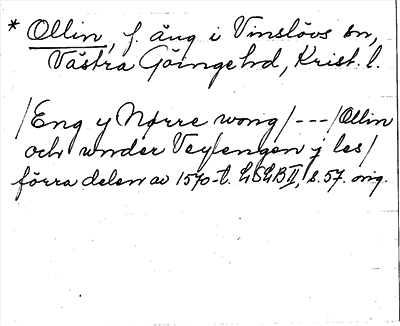 * Ollin, f. äng i Vinslövs sn,
Västra Göinge hd, Krist. l.
/Eng y Nørre wong/ - - - /Ollin
och wnder Veylengen j les/
förra delen av 1570-t. LSLB II, s. 57. orig.